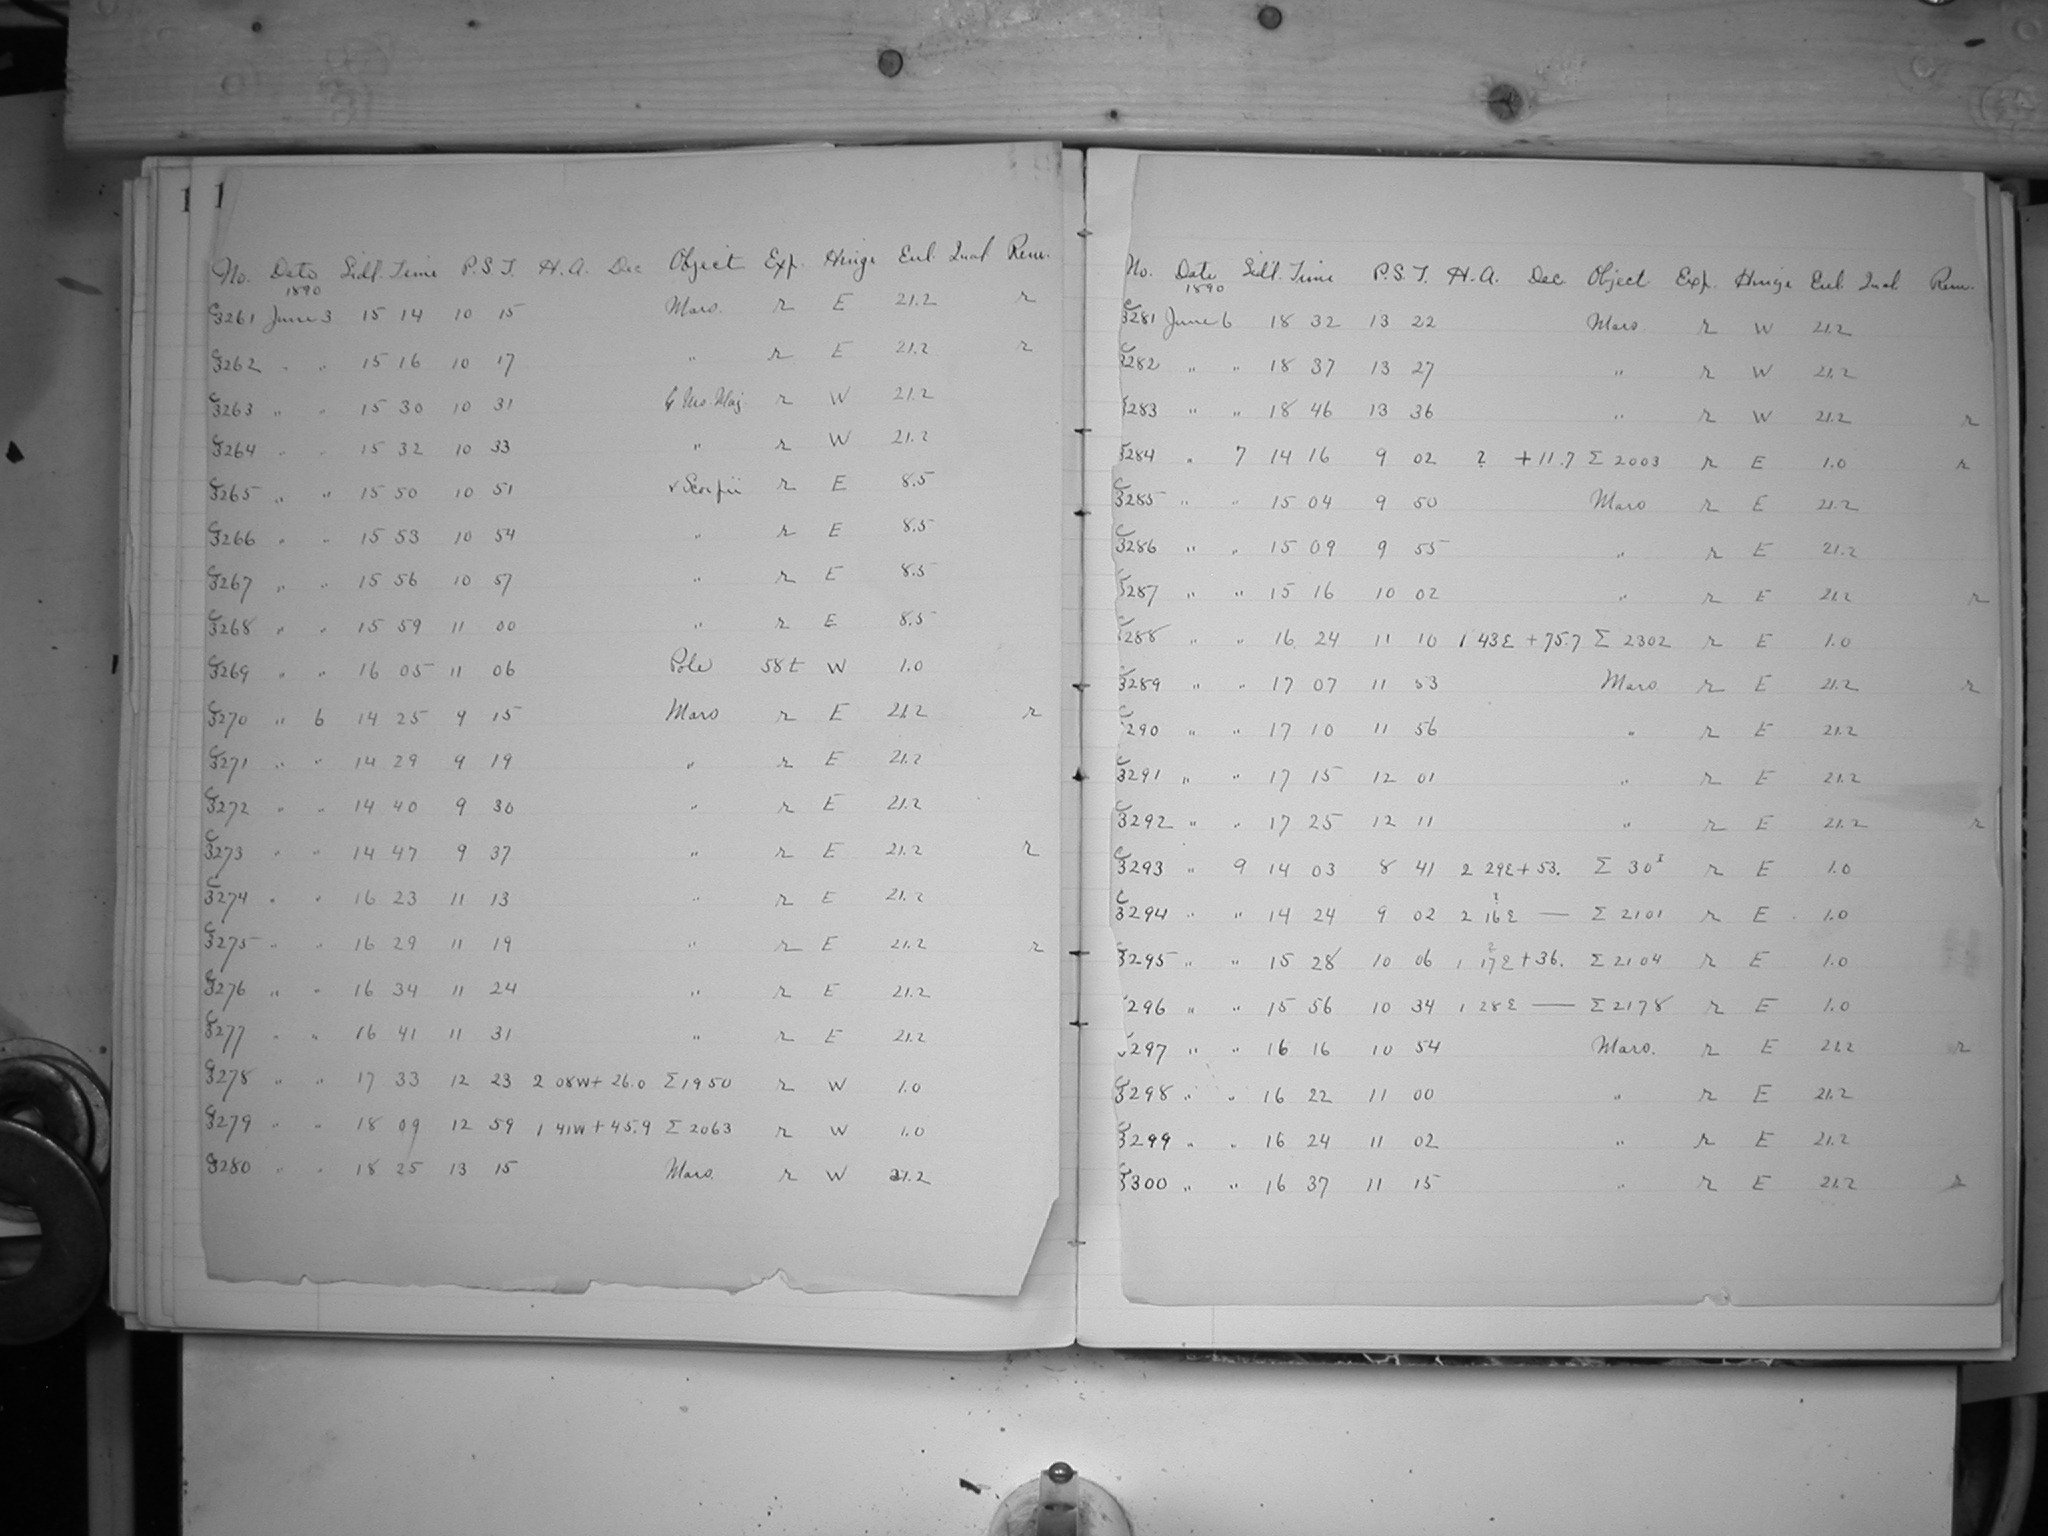 1 1
No. Date Sidl. Time P.S.T. H.A. Dec Object Exp. Hinge Enl. Qual Rem.
1890
C3261 June 3 15 14 10 15 Mars. r E 21.2 r
C3262 " " 15 16 10 17 " r E 21.2 r
C3263 " " 15 30 10 31 Urs. Maj. r W 21.2
C3264 " " 15 32 10 33 " r W 21.2
C3265 " " 15 50 10 51 ν Scorpii r E 8.5
C3266 " " 15 53 10 54 " r E 8.5
C3267 " " 15 56 10 57 " r E 8.5
C3268 " " 15 59 11 00 " r E 8.5
C3269 " " 16 05 11 06 Pole 58t W 1.0
C3270 " 6 14 25 9 15 Mars r E 21.2 r
C3271 " " 14 29 9 19 " r E 21.2
C3272 " " 14 40 9 30 " r E 21.2
C3273 " " 14 47 9 37 " r E 21.2 r
C3274 " " 16 23 11 13 " r E 21.2
C3275 " " 16 29 11 19 " r E 21.2 r
C3276 " " 16 34 11 24 " r E 21.2
C3277 " " 16 41 11 31 " r E 21.2
C3278 " " 17 33 12 23 2 08W + 26.0 Σ 1950 r W 1.0
C3279 " " 18 09 12 59 1 41W + 45.9 Σ 2063 r W 1.0
C3280 " " 18 25 13 15 Mars. r W 21.2
No. Date Sidl. Time P.S.T. H.A. Dec. Object Exp. Hinge Enl. Qual. Rem.
1890
C3281 June 6 18 32 13 22 Mars r W 21.2
C3282 " " 18 37 13 27 " r W 21.2
3283 " " 18 46 13 36 " r W 21.2 r
3284 " 7 14 16 9 02 ? +11.7 Σ 2003 r E 1.0 r
C3285 " " 15 04 9 50 Mars r E 21.2
C3286 " " 15 09 9 55 " r E 21.2
3287 " " 15 16 10 02 " r E 21.2 r
3288 " " 16 24 11 10 1 43E + 75.7 Σ 2302 r E 1.0
C3289 " " 17 07 11 53 Mars r E 21.2 r
C290 " " 17 10 11 56 " r E 21.2
C3291 " " 17 15 12 01 " r E 21.2
C3292 " " 17 25 12 11 " r E 21.2 r
C3293 " 9 14 03 8 41 2 29E + 53. Σ 30 I r E 1.0
C3294 " " 14 24 9 02 2 16E ? — Σ 2101 r E 1.0
3295 " " 15 28 10 06 1 17E ? + 36. Σ 2104 r E 1.0
296 " " 15 56 10 34 1 28E — Σ 2178 r E 1.0
297 " " 16 16 10 54 Mars. r E 21.2 r
C3298 " " 16 22 11 00 " r E 21.2
C3299 " " 16 24 11 02 " r E 21.2
3300 " " 16 37 11 15 " r E 21.2 r